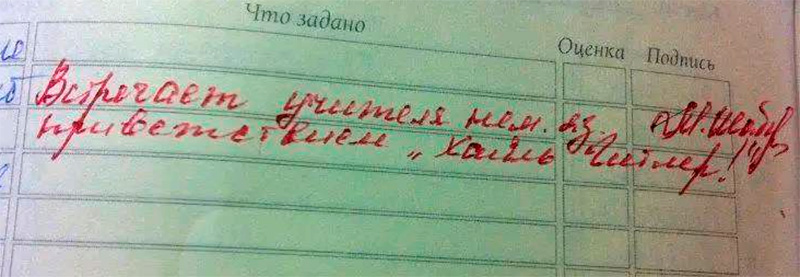 Что задано
Оценка Подпись
Встречает учителя нем. яз.
приветствием „Хайль Гитлер!"